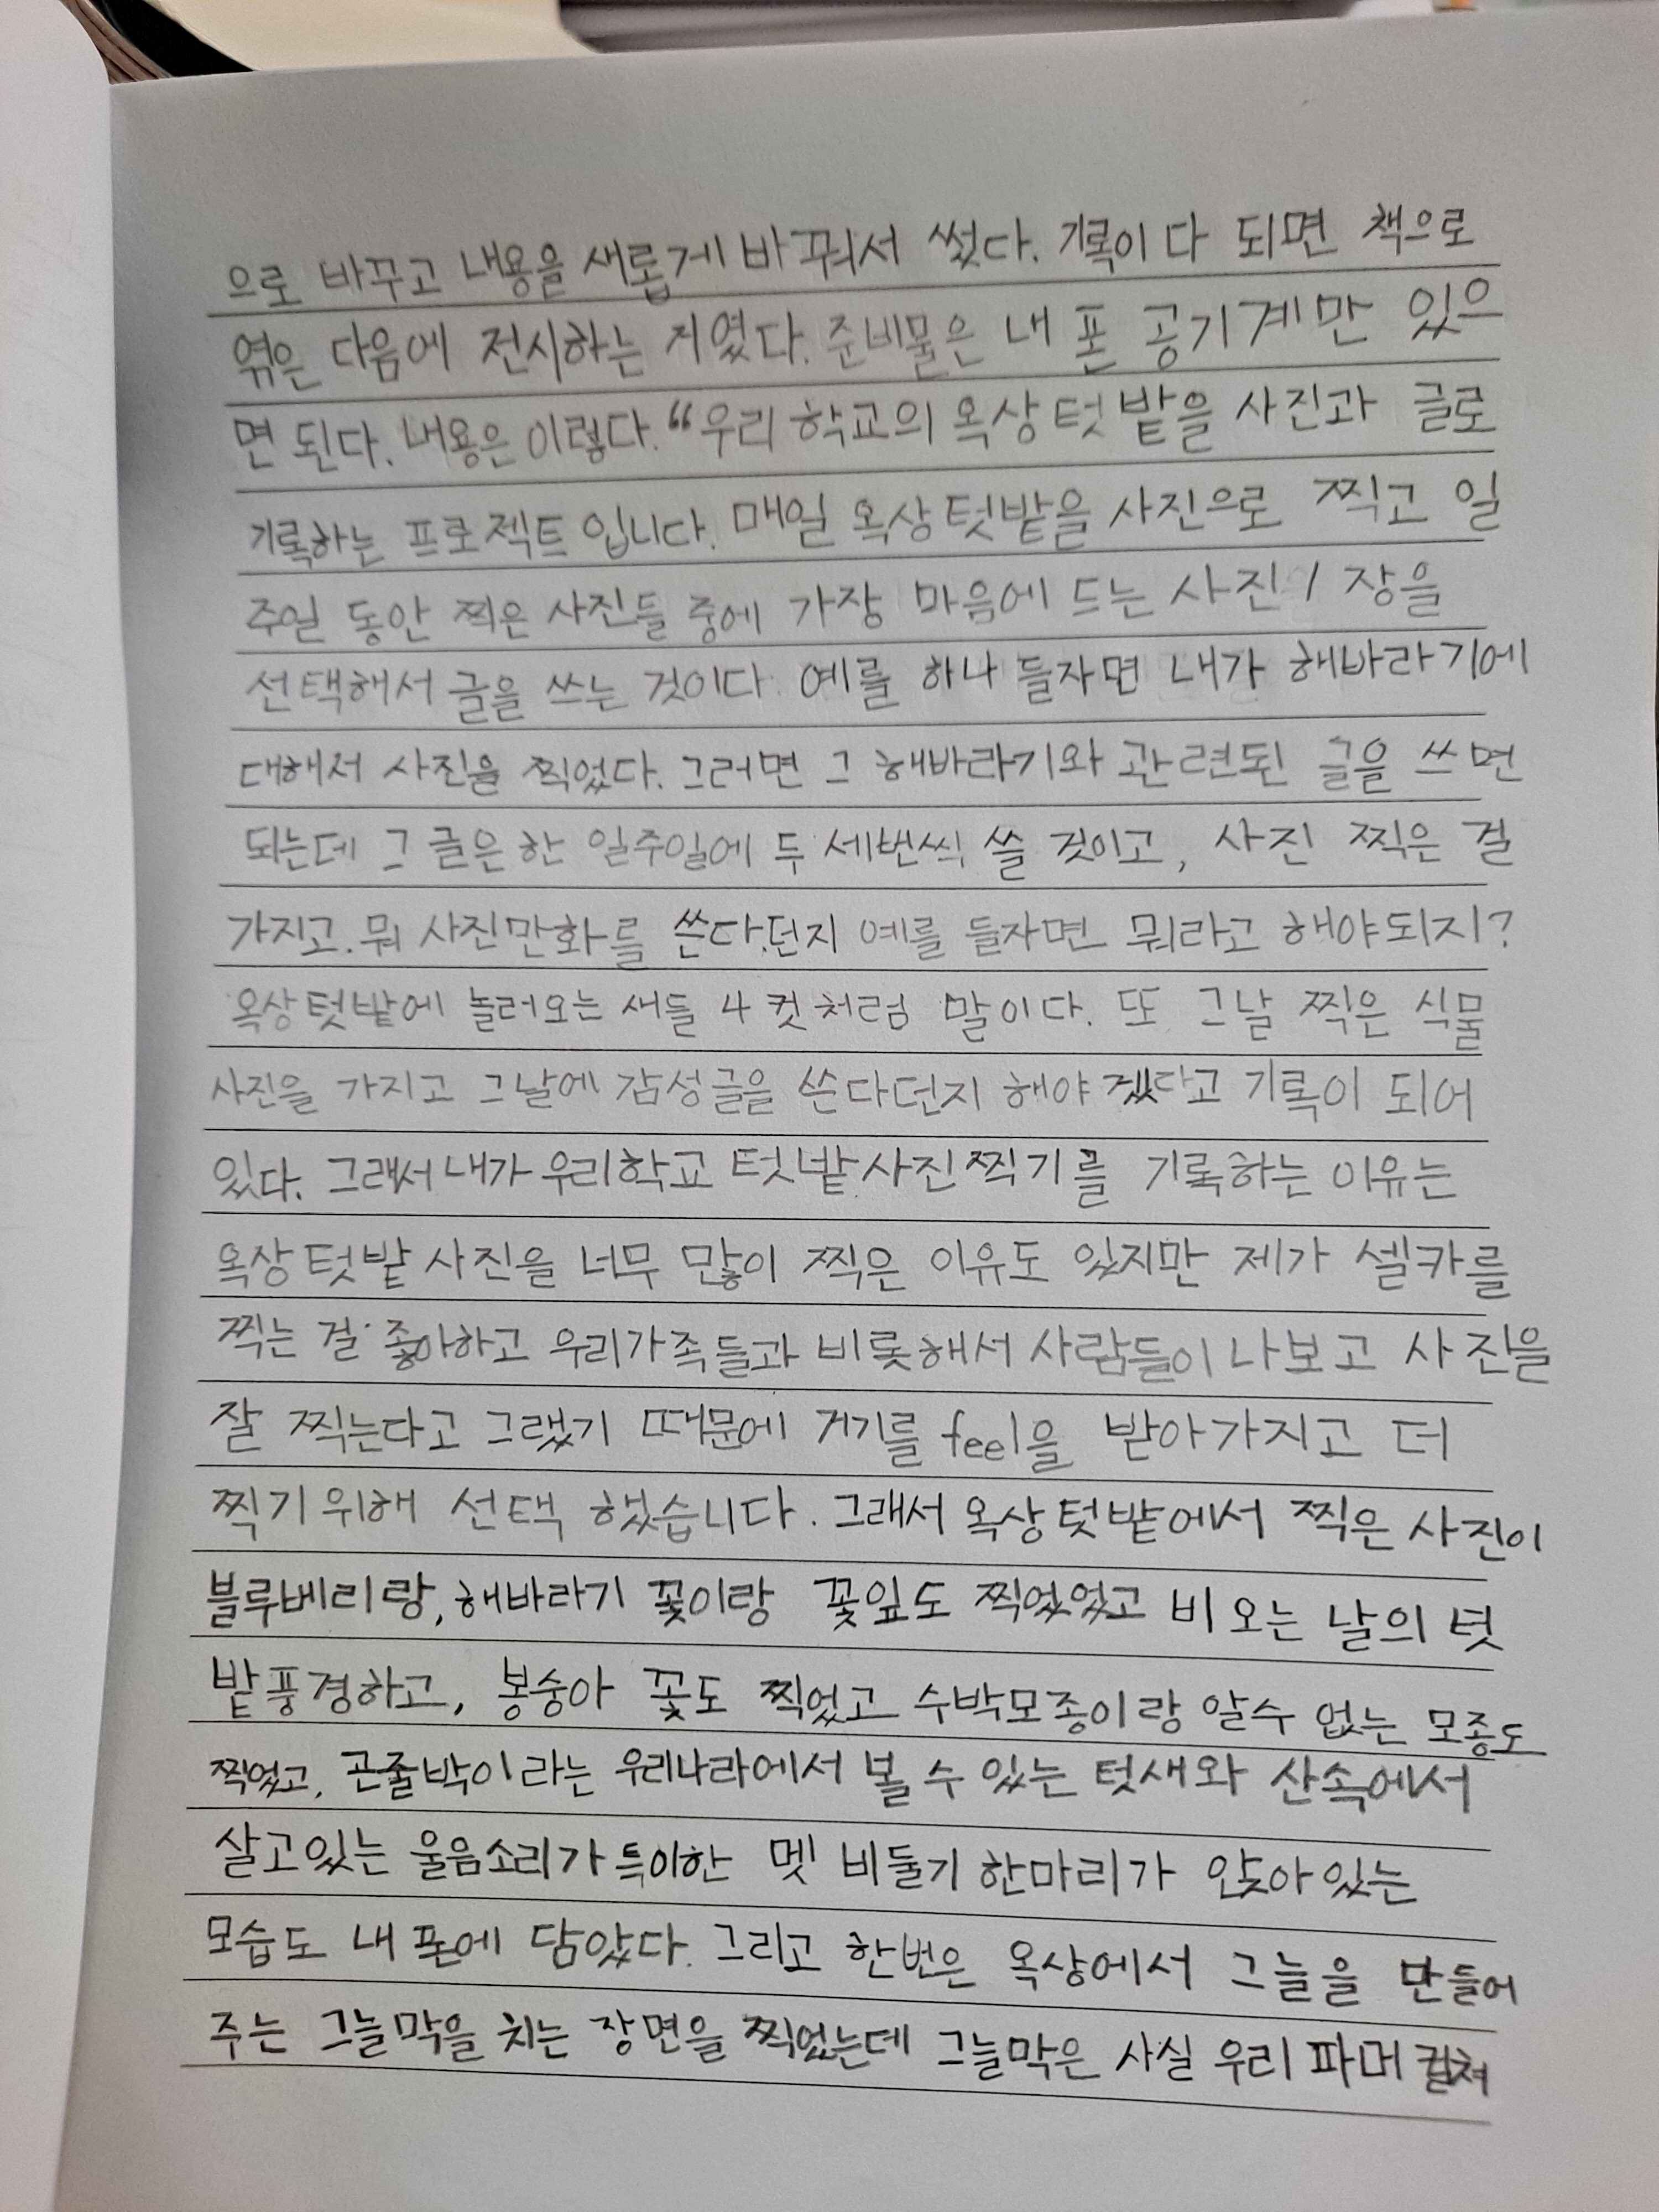 으로 바꾸고 내용을 새롭게 바꿔서 썼다. 기록이 다 되면 책으로
엮은 다음에 전시하는 거였다. 준비물은 내 폰 공기계만 있으
면 된다. 내용은 이렇다. “우리 학교의 옥상텃밭을 사진과 글로
기록하는 프로젝트입니다. 매일 옥상텃밭을 사진으로 찍고 일
주일 동안 찍은 사진들 중에 가장 마음에 드는 사진 1 장을
선택해서 글을 쓰는 것이다. 예를 하나 들자면 내가 해바라기에
대해서 사진을 찍었다. 그러면 그 해바라기와 관련된 글을 쓰면
되는데 그 글은 한 일주일에 두 세번씩 쓸 것이고, 사진 찍은 걸
가지고. 뭐 사진만화를 쓴다.던지 예를 들자면 뭐라고 해야되지?
옥상텃밭에 놀러오는 새들 4 컷처럼 말이다. 또 그날 찍은 식물
사진을 가지고 그날에 감성글을 쓴다던지 해야겠다고 기록이 되어
있다. 그래서 내가 우리학교 텃밭사진찍기를 기록하는 이유는
옥상텃밭 사진을 너무 많이 찍은 이유도 있지만 제가 셀카를
찍는 걸 좋아하고 우리가족들과 비롯해서 사람들이 나보고 사진을
잘 찍는다고 그랬기 때문에 거기를 feel을 받아가지고 더
찍기위해 선택 했습니다. 그래서 옥상텃밭에서 찍은 사진이
블루베리랑, 해바라기 꽃이랑 꽃잎도 찍었었고 비 오는 날의 텃
밭풍경하고, 봉숭아 꽃도 찍었고 수박모종이랑 알수 없는 모종도
찍었고, 곤줄박이라는 우리나라에서 볼 수 있는 텃새와 산속에서
살고있는 울음소리가 특이한 멧 비둘기 한마리가 앉아있는
모습도 내 폰에 담았다. 그리고 한번은 옥상에서 그늘을 만들어
주는 그늘막을 치는 장면을 찍었는데 그늘막은 사실 우리 파머컬쳐